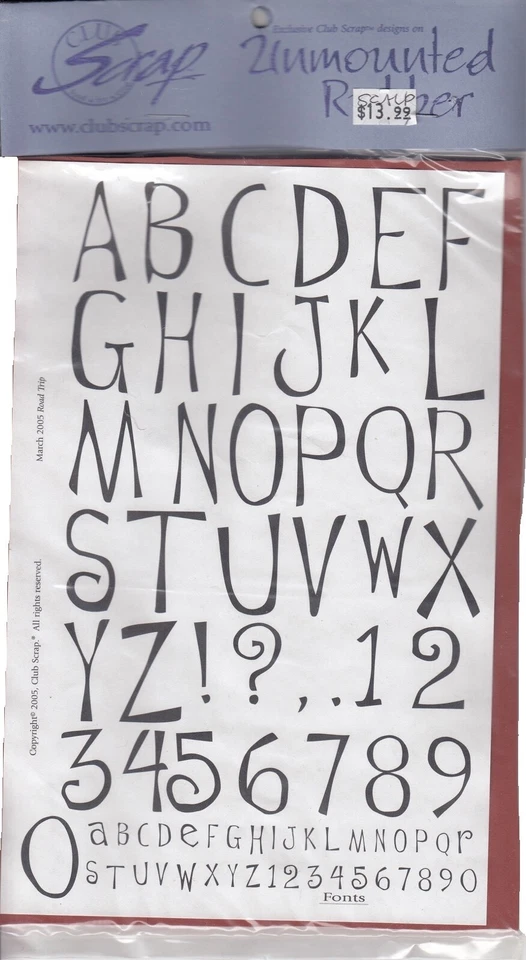 CLUB
Scrap
www.clubscrap.com
Exclusive Club Scrap™ designs on
Unmounted
Rubber
$13.99
A B C D E F
G H I J K L
M N O P Q R
S T U V W X
Y Z ! ? , . . 1 2
3 4 5 6 7 8 9
0
a B C D e F G H I J K L M N O P Q r
s T U V W X Y Z 1 2 3 4 5 6 7 8 9 0
Fonts
March 2005 Road Trip
Copyright© 2005, Club Scrap.® All rights reserved.